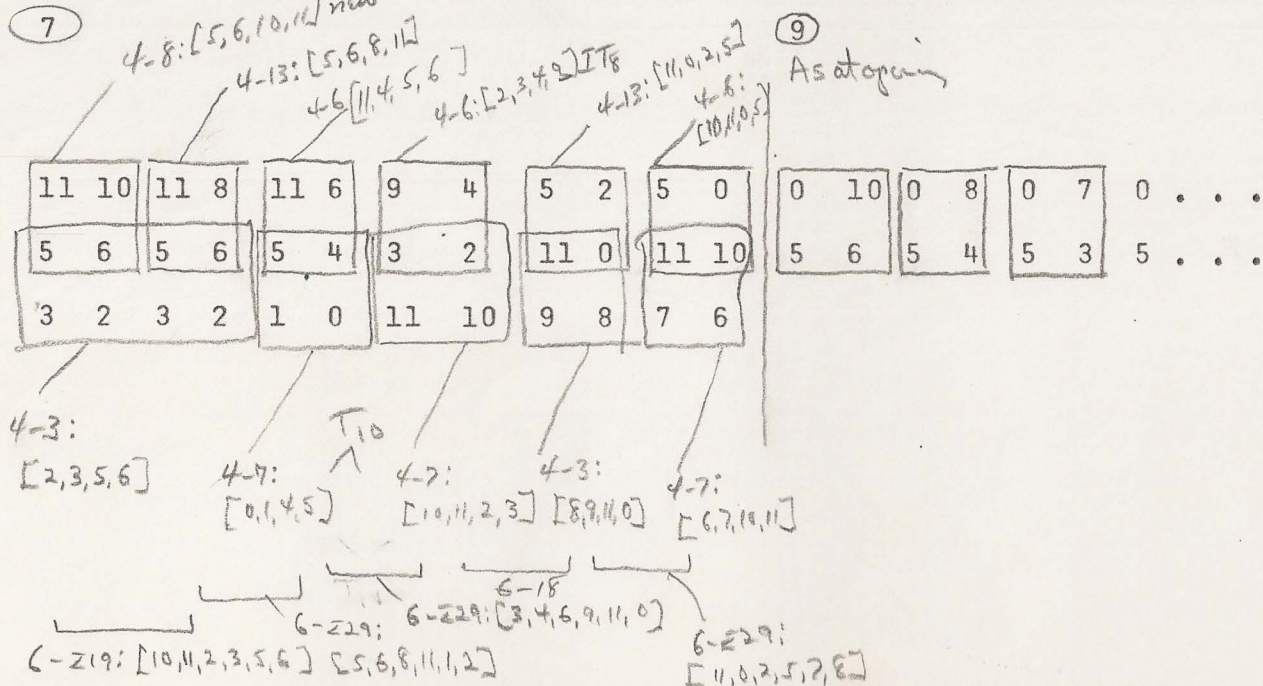 7
4-8: [5,6,10,11]
4-13: [5,6,8,11]
4-6 [11,4,5,6]
4-6: [2,3,4,9] IT8
4-13: [11,0,2,5]
4-6:
[10,11,0,5]
9
As at opening
11 10 11 8 11 6 9 4 5 2 5 0 0 10 0 8 0 7 0 . . .
5 6 5 6 5 4 3 2 11 0 11 10 5 6 5 4 5 3 5 . . .
3 2 3 2 1 0 11 10 9 8 7 6
4-3:
[2,3,5,6]
T10
4-7:
[0,1,4,5]
4-7:
[10,11,2,3]
4-3:
[8,9,11,0]
4-7:
[6,7,10,11]
6-Z19: [10,11,2,3,5,6]
6-Z29:
[5,6,8,11,1,2]
6-Z29: [3,4,6,9,11,0]
6-18
6-Z29:
[11,0,2,5,7,8]